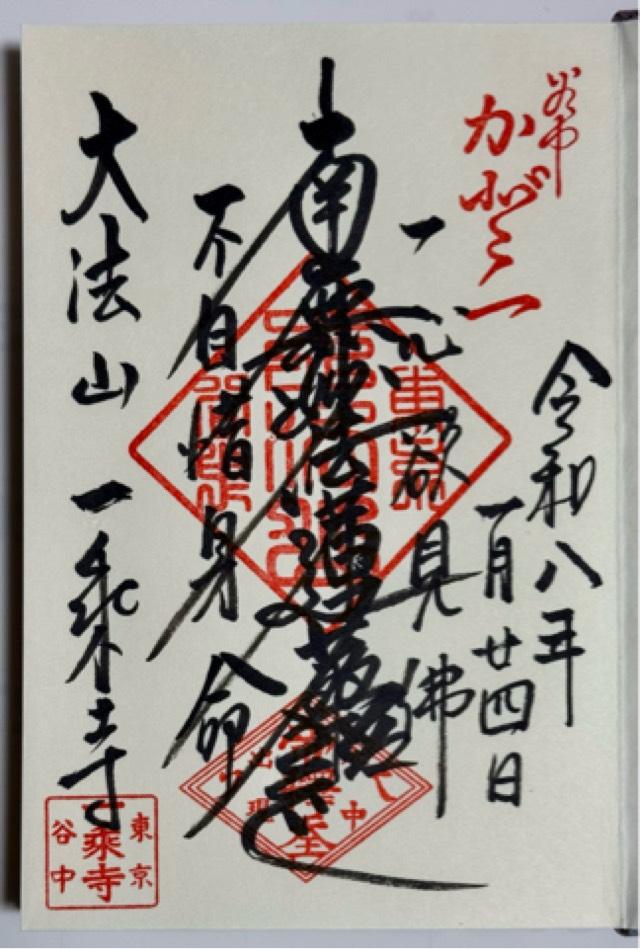 谷中
令和八年
一月廿四日
一心欲見佛
南無妙法蓮華經
不自惜身命
大法山 一乘寺
東京
一乘寺
谷中